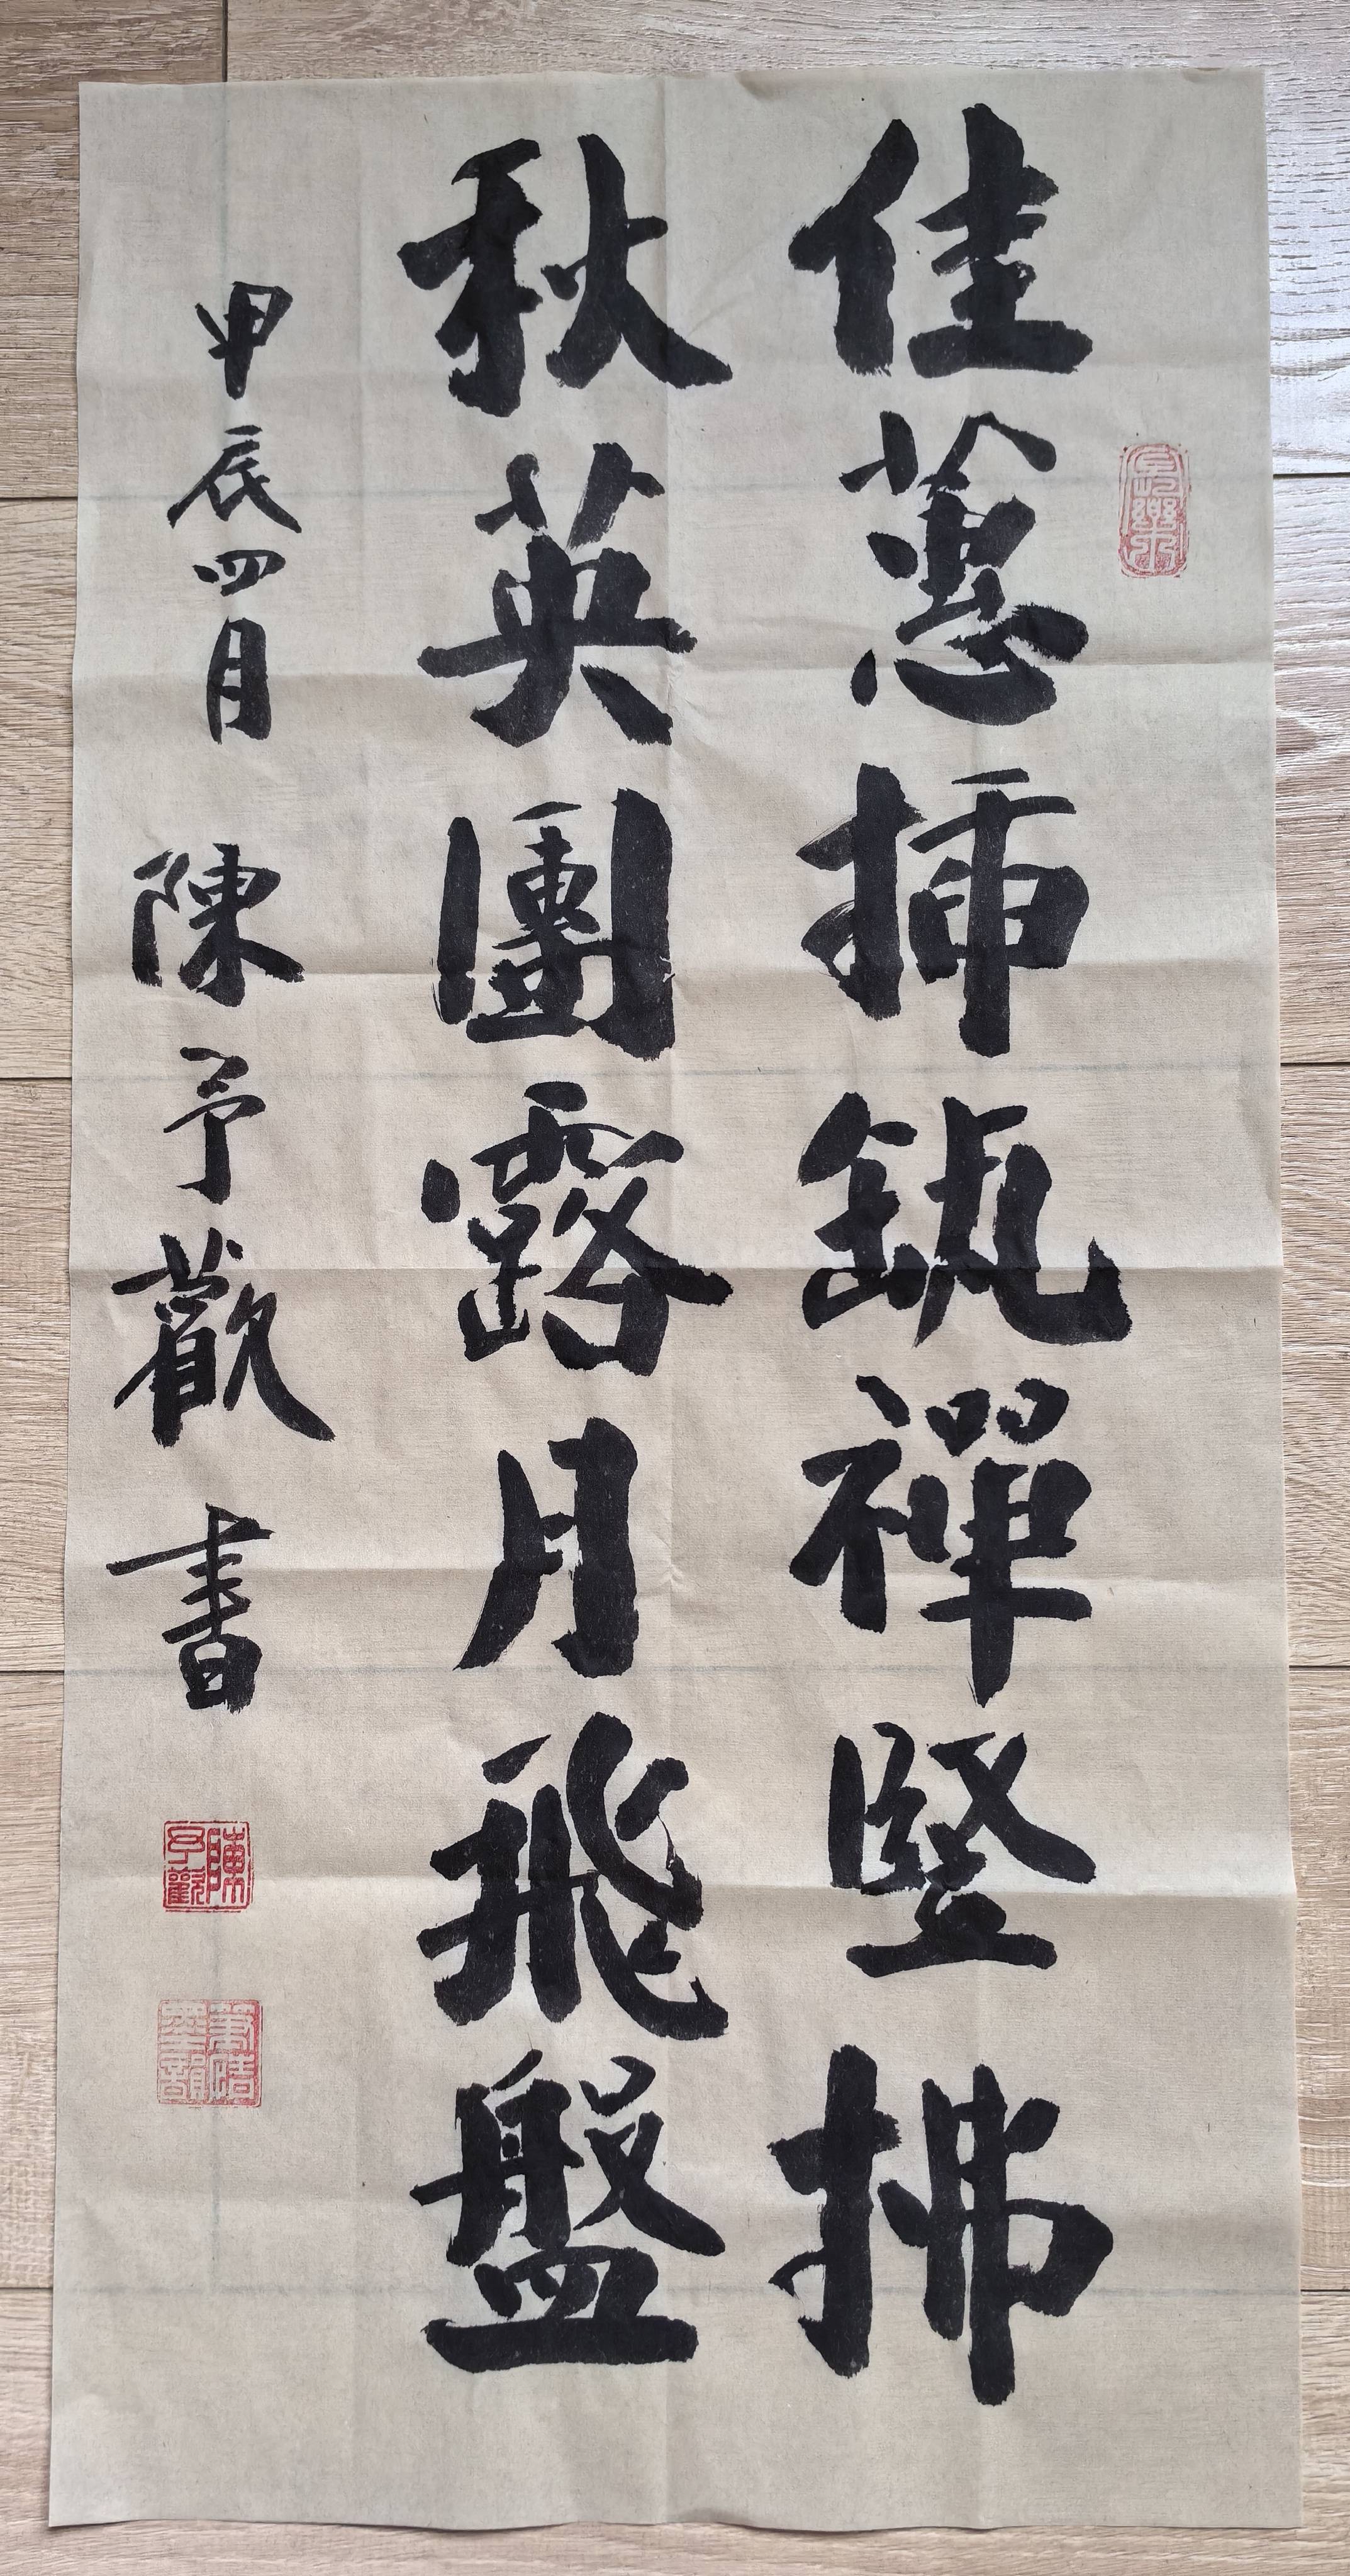 佳蕙插缻禪竪拂
秋英團露月飛盤
甲辰四月 陳予歡 書
陳予歡